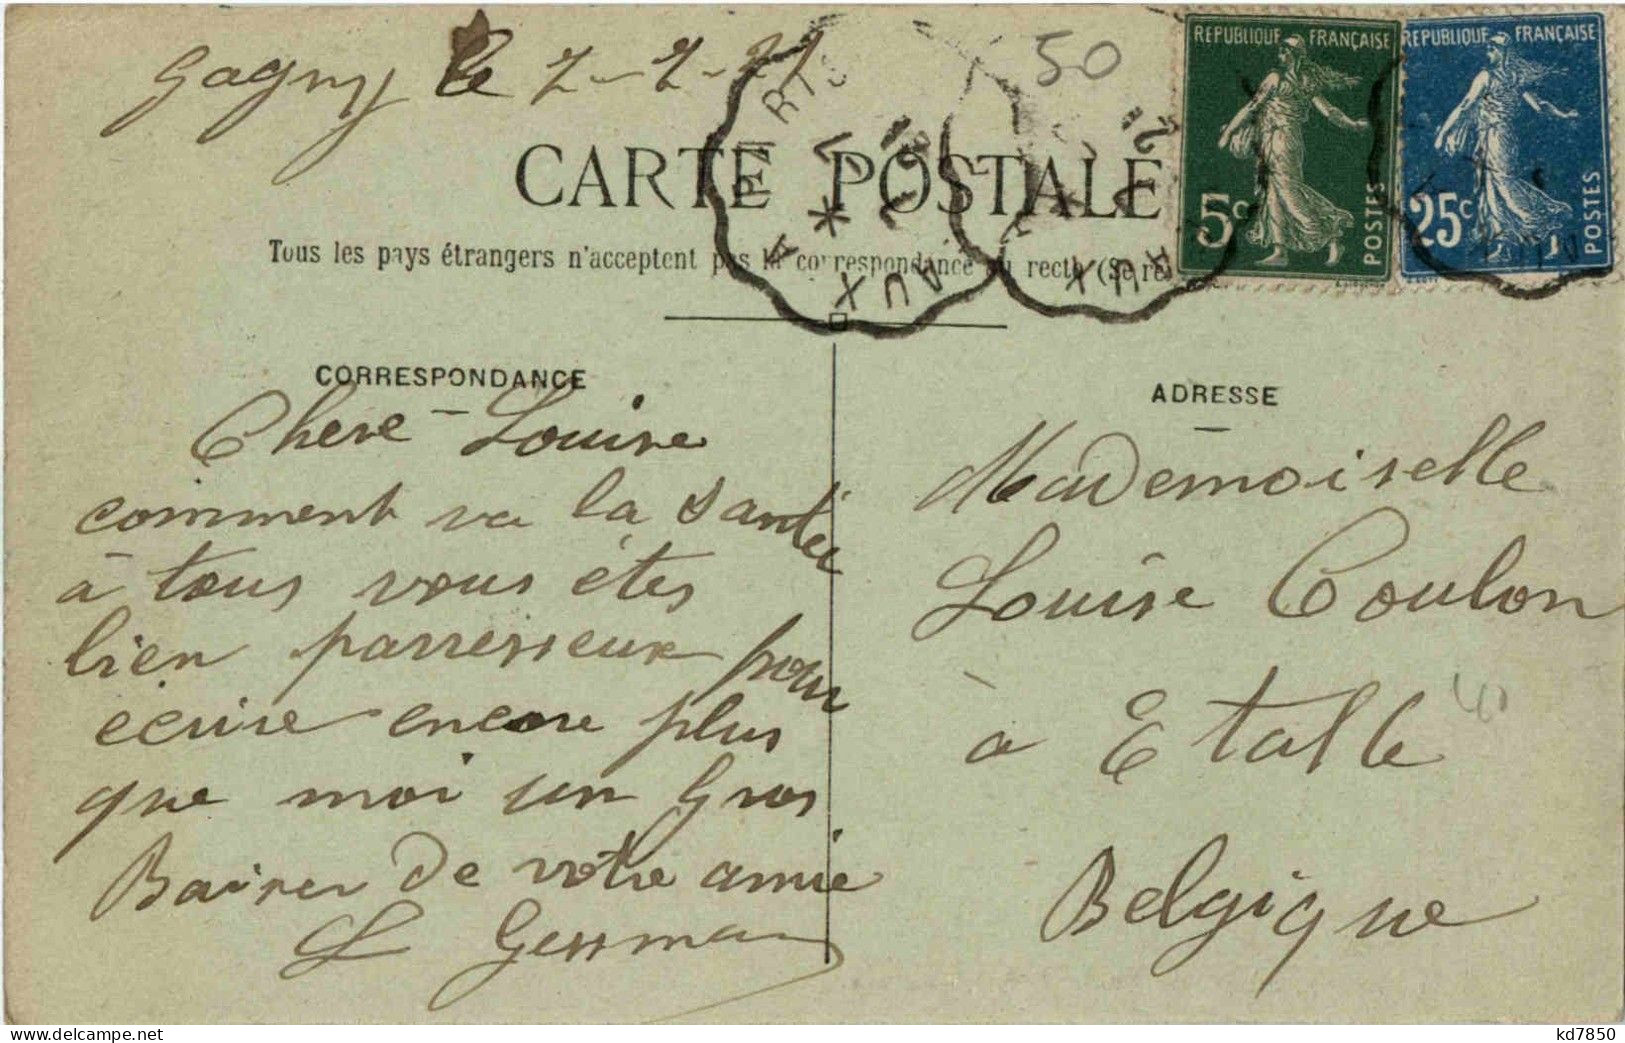 Gagny le 7-2-21
50
REPUBLIQUE FRANÇAISE
5c
POSTES
REPUBLIQUE FRANÇAISE
25c
POSTES
PARIS A
AUX
AUX
CARTE POSTALE
Tous les pays étrangers n'acceptent pas la correspondance au recto (Se re
CORRESPONDANCE
Chere Louise
comment va la santée
à tous vous étes
bien parresseux pour
écrire encore plus
que moi un Gros
Baiser de votre amie
L Gessman
ADRESSE
Mademoiselle
Louise Coulon
à Etalle
Belgique
kd7850